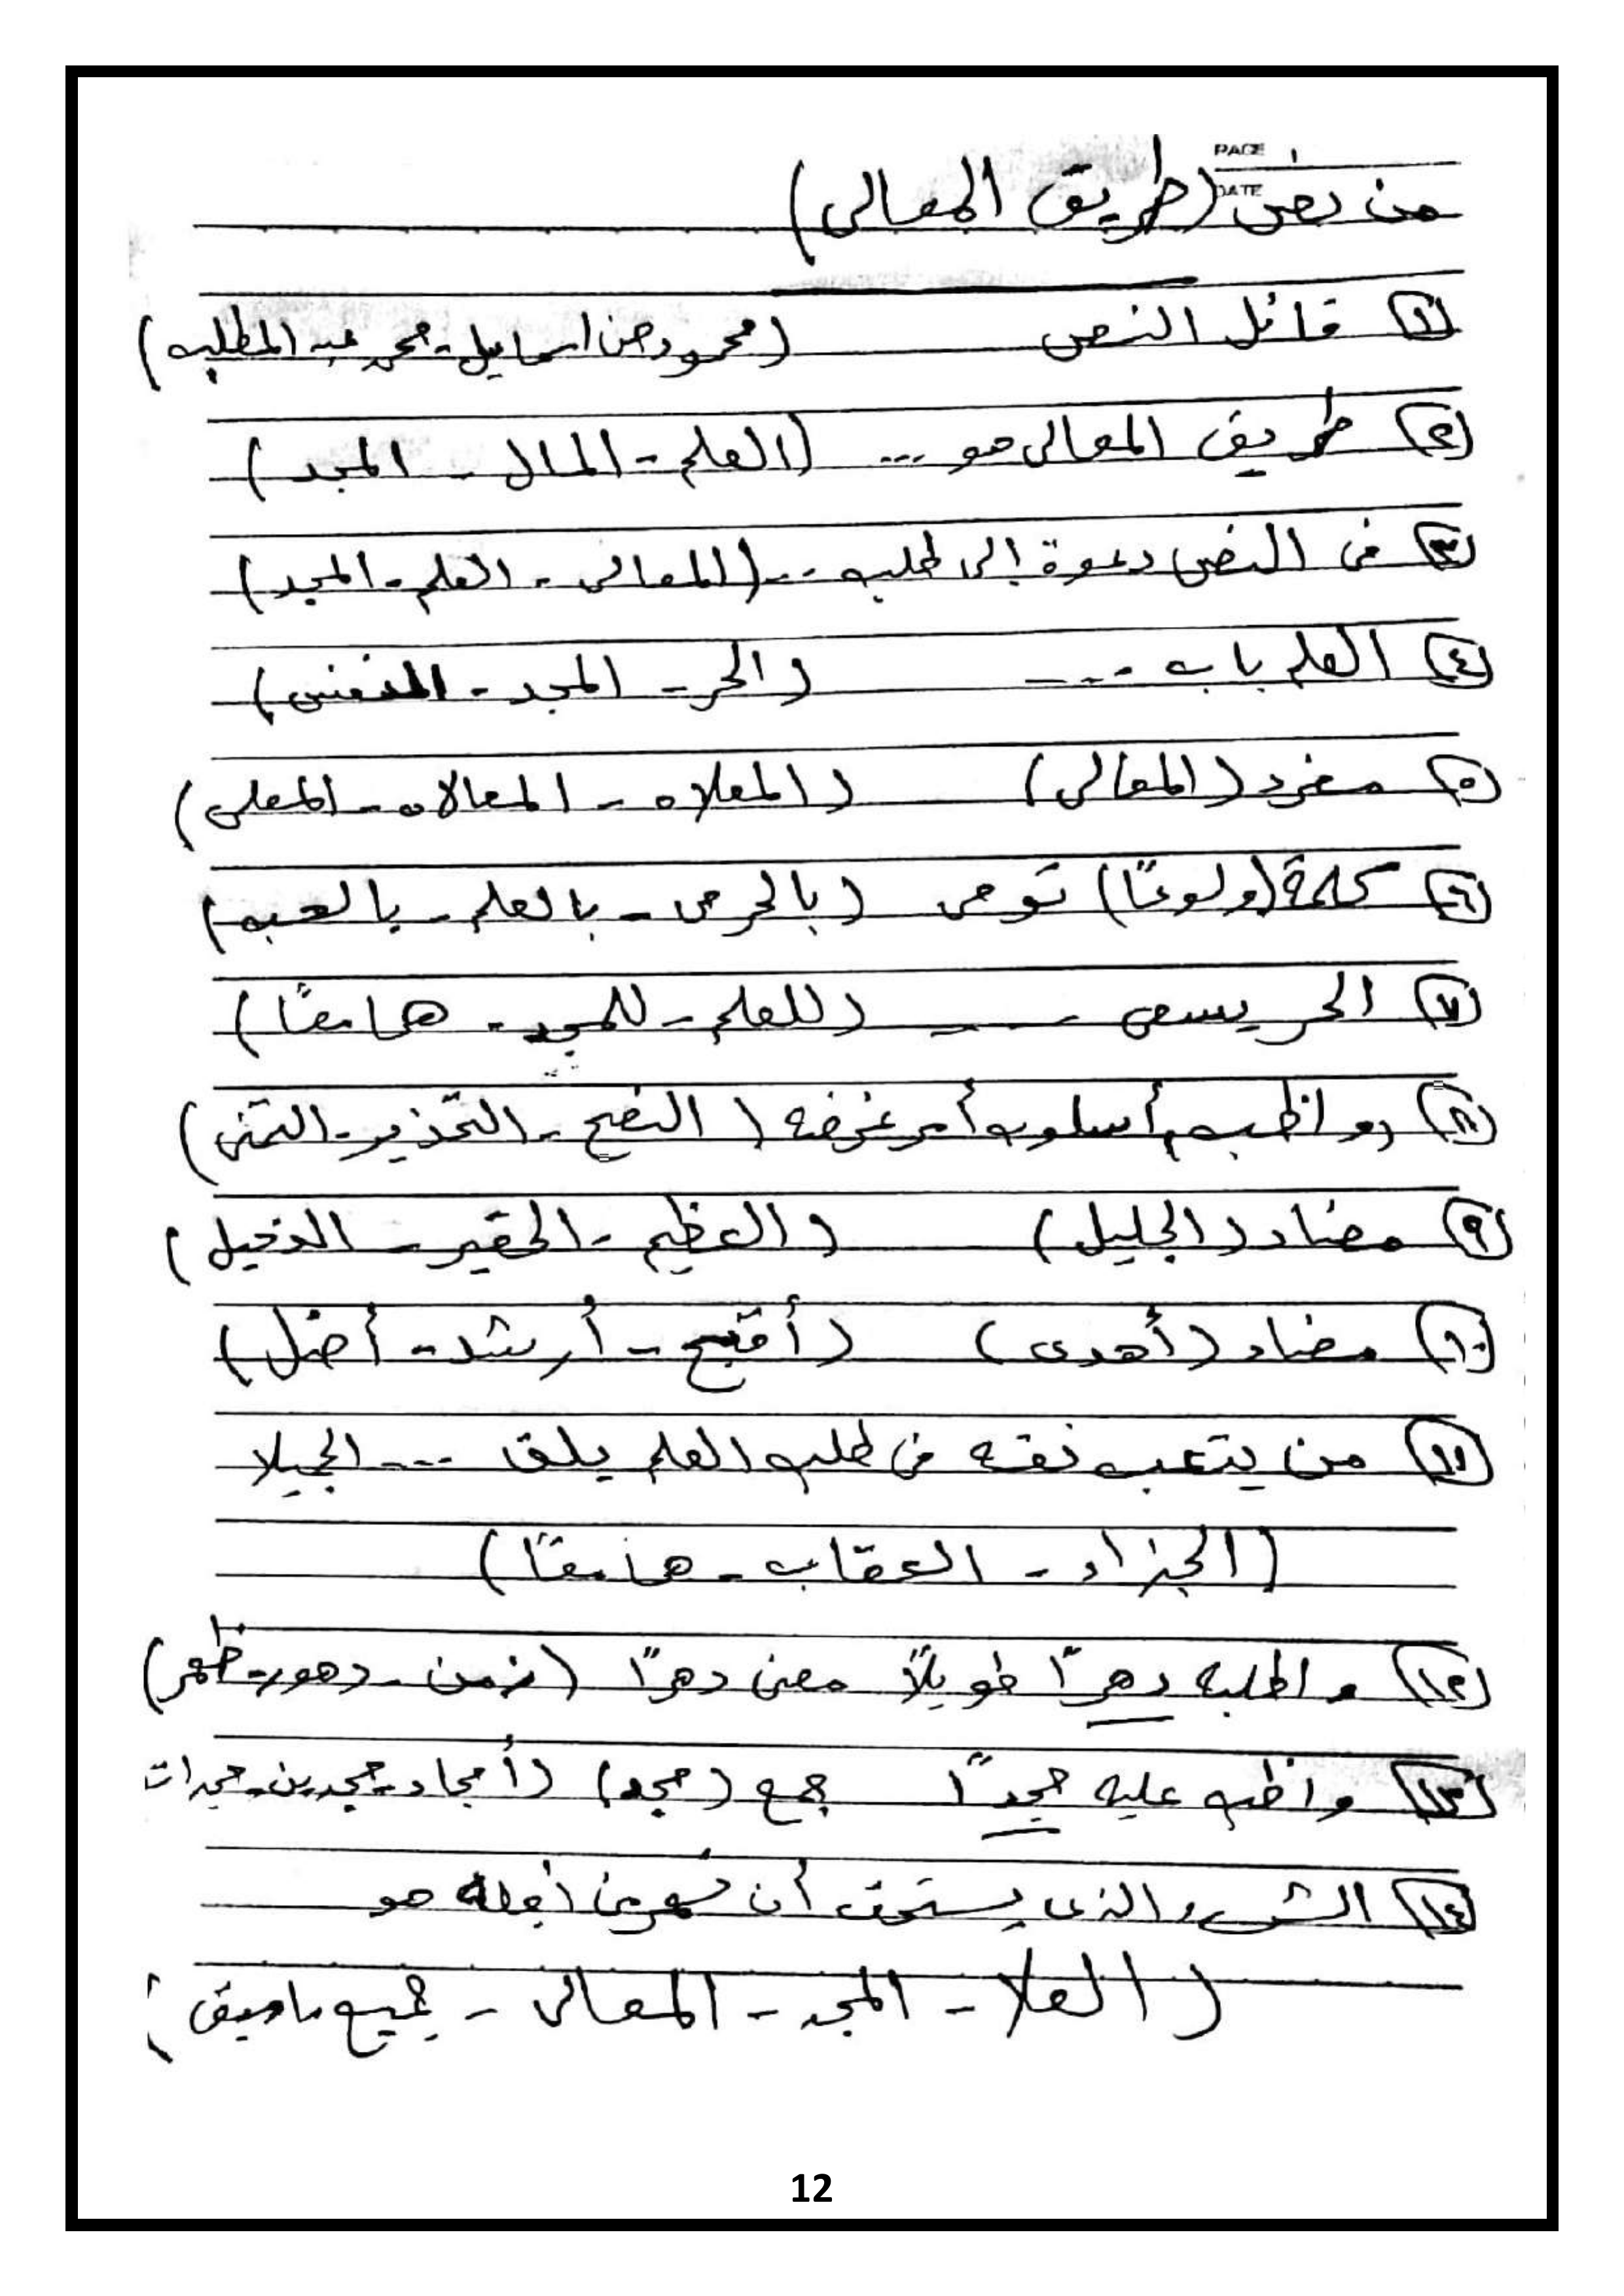 PAGE ١
DATE
من نص (طريق المعالى)
(١) قائل النص (محمود حسن اسماعيل - محمد عبد المطلب)
(٢) طريق المعالى هو ... (العلم - المال - المجد)
(٣) فى النص دعوة إلى طلب ... (المعالى - العلم - المجد)
(٤) العلم باب .... (الحر - المجد - النفس)
(٥) مفرد (المعالى) (المعلاه - المعالاه - المعلى)
(٦) كلمة (ولوعًا) توحى (بالحرص - بالعلم - بالحب)
(٧) الحر يسعى ... (للعلم - للمجد - هما معًا)
(٨) (واظب) أسلوب أمر غرضه (النصح - التحذير - التمنى)
(٩) مضاد (الجليل) (العظيم - الحقير - الدخيل)
(١٠) مضاد (أهدى) (أقبح - أرشد - أضل)
(١١) من يتعب نفسه فى طلب العلم يلق ... الجميلا
(الجزاء - العقاب - هما معًا)
(١٢) واطلبه دهرًا طويلاً معنى دهرًا (زمن - دهور - ظهر)
(١٣) واظب عليه مجدًا جمع (مجد) (أمجاد - مجدين - مجدات
(١٤) الشىء الذى يستحق أن نسهر من أجله هو
(العلا - المجد - المعالى - جميع ما سبق)
12